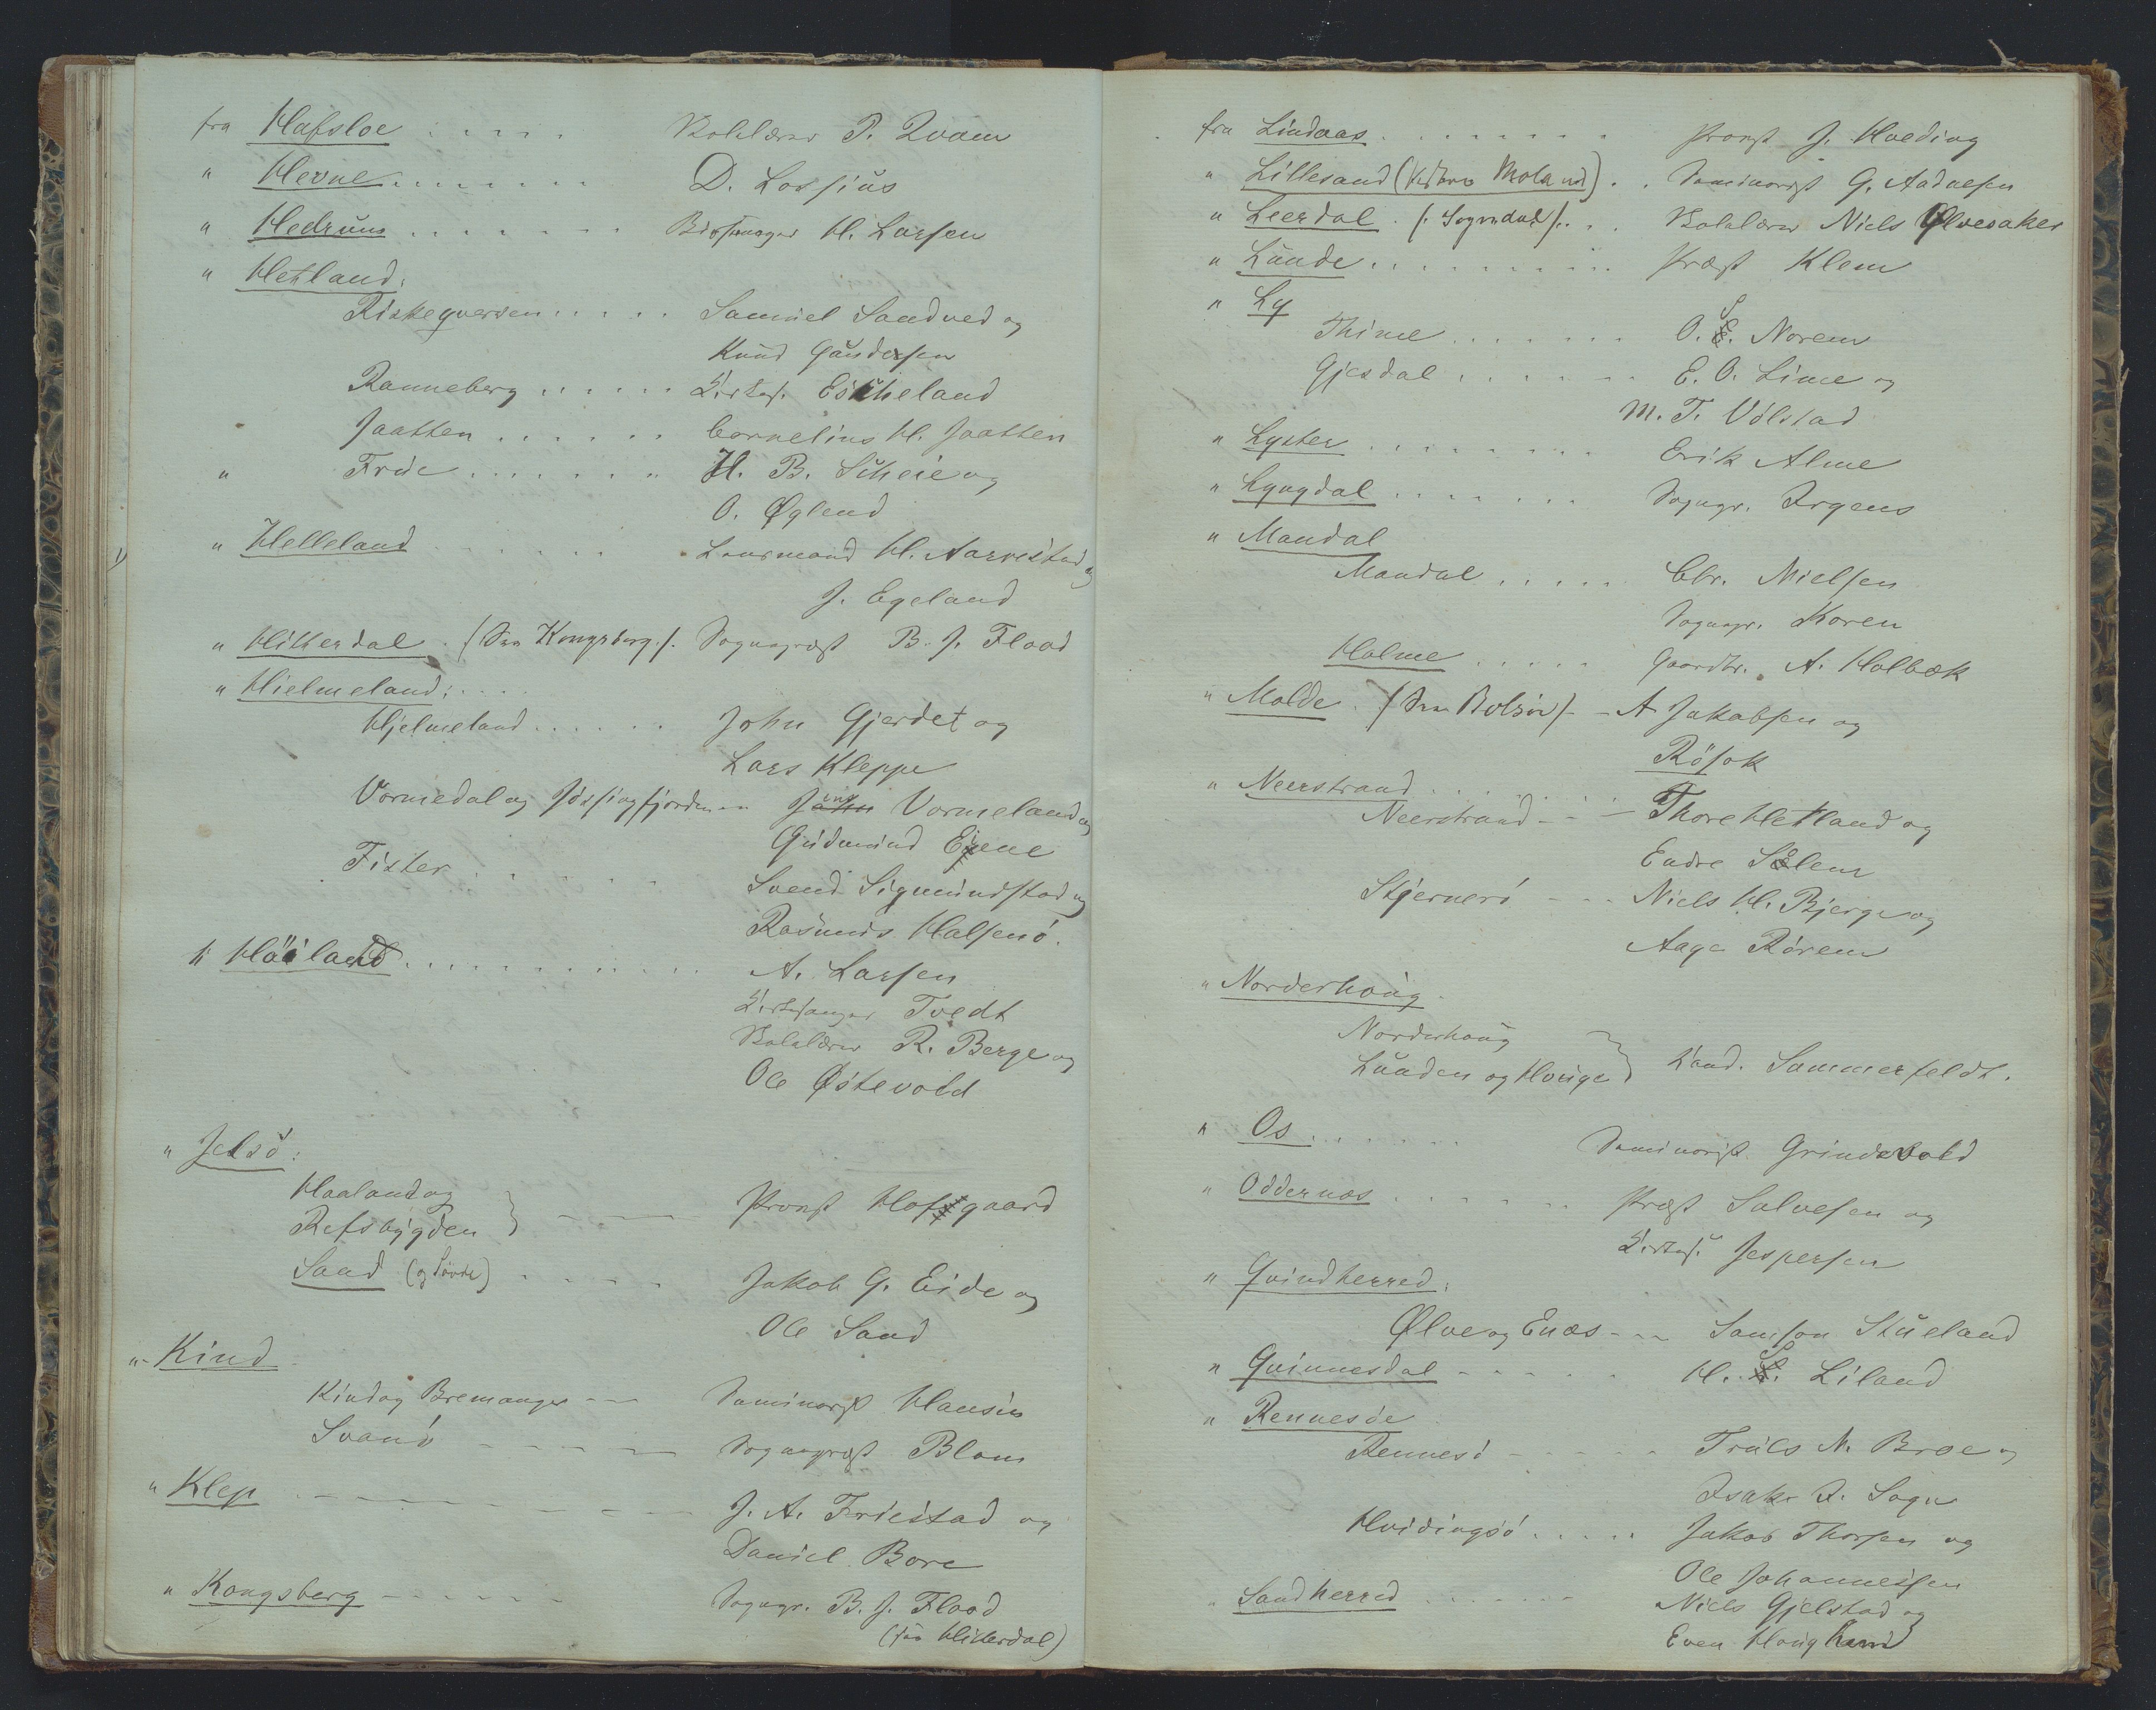 fra Hafsloe . . . . . Skolelærer P. Qvam
" Hevne . . . . . . . D. Lossius
" Hedrum . . . . . . . H. Larsen
" Hetland:
Riskeqversen . . . . . Samuel Sandved og
Knud Gundersen
Ranneberg . . . . . . Kirkes. Eskheland
Jaatten . . . . . . Cornelius H. Jaatten
" Frue . . . . . . . H. B. Scheie og
O. Øglend
" Helleland . . . . . . Lensmand H. Aarrestad og
J. Egeland
" Hitterdal . (See Kongsberg). Sognepræst B. J. Flood
" Hielmeland: . . .
Hjelmeland . . . . . . John Gjerdet og
Lars Kleppe
Vormedal og Jøssingfjorden Jens Vormeland og
Gudmund Eiene
Fister . . . . . . Svend Sigmundstad og
Rasmus Halsenö.
" Höiland . . . . . . . . . . . A. Larsen
Kirkesanger Tvedt
Skolelærer R. Berge og
Ole Østevold
" Jelsö:
Haaland og
Refsbygden } — — — Provst Hofgaard
Sand (og Søvde) . . . . Jakob G. Eide og
Ole Sand
" Kind
Kind og Bremanger — — Seminarist Hansen
Svanö — — — — — Sognepræst Blom
" Klep . — — — — — — — — J. A. Friestad og
Daniel Bore
" Kongsberg — — — — — — Sognepr. B. J. Flood
(see Hitterdal)
fra Lindaas . . . . . . . . Provst J. Hvoding
" Lillesand (Vestre Moland) . . Seminarist G. Aadnesen
" Leerdal . (: Sogndal :) . . . Skolelærer Niels Ølvesaker
" Lunde . . . . . . . . . Præst Klem
" Ly
Thime . . . . . . . O. S. Norem
Gjesdal . . . . . . . E. O. Lime og
M. T. Völstad
" Lyster . . . . . . . . Erik Alme
" Lyngdal . . . . . . . Sognepr. Irgens
" Mandal
Mandal . . . . . Chr. Nielsen
Sognepr. Koren
Halme . . . . . Gaardbr. A. Holbæk
" Molde . (See Bolsöe) - - A Jakobsen og
Rösok
" Neerstrand . . . . . . .
Neerstrand - - - Thore Hetland og
Endre Selem
Stjernerö - - - Niels H. Bjerge og
Aage Rörem
" Norderhoug
Norderhoug
Lunden og Honige } Kand. Sommerfeldt.
" Os . . . . . . Seminarist Grindevold
" Oddernæs . . . . . . Præst Salvesen og
Kirkes. Jespersen
" Qvindherred:
Ølve og Enæs - - - Samson Stueland
" Qvinnesdal - - - - - H. S. Liland
" Rennesöe
Rennesö - - - - - Truls N. Broe og
Isak I. Sogn
Hvidingsö . . . . . Jakob Thorsen og
Ole Johannessen
" Sandherred . . . . . . . Niels Gjelstad og
Even Haugland